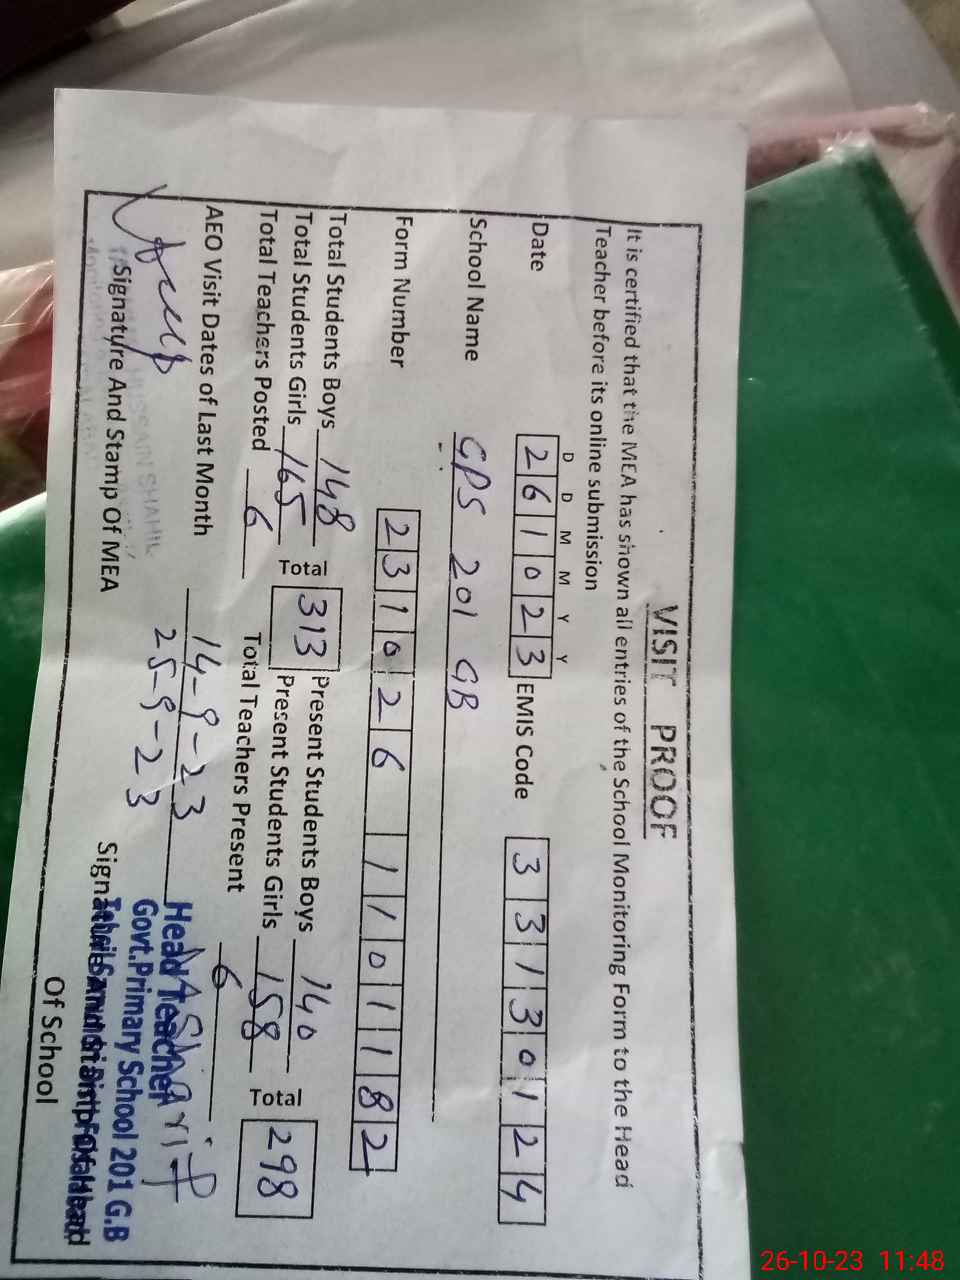 VISIT PROOF
It is certified that the MEA has shown all entries of the School Monitoring Form to the Head
Teacher before its online submission
D D M M Y Y
Date 261023 EMIS Code 33130124
School Name GPS 201 GB
Form Number 231026 1101182
Total Students Boys 148 Total 313 Present Students Boys 140 Total 298
Total Students Girls 165 Present Students Girls 158
Total Teachers Posted 6 Total Teachers Present 6
AEO Visit Dates of Last Month 14-9-23
25-9-23
HUSSAIN SHAHIL
Signature And Stamp Of MEA
Head Teacher
Govt.Primary School 201 G.B
Signature And Stamp Of Head
Of School
26-10-23 11:48